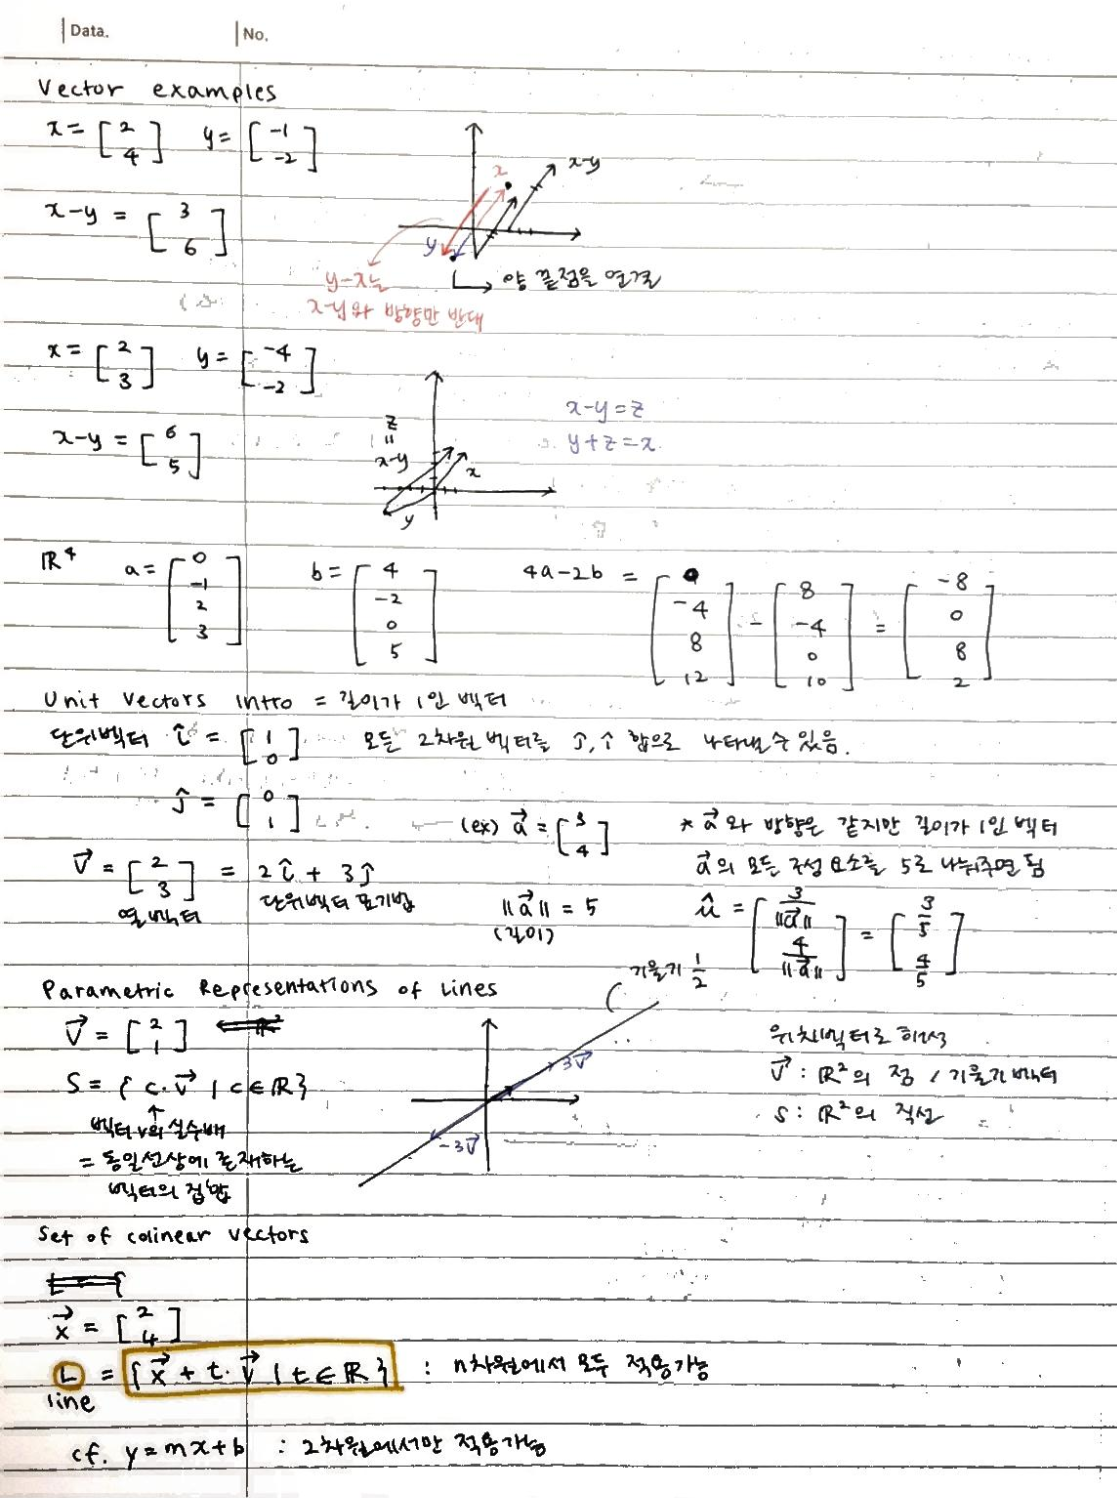 Data. No.
Vector examples
x = [2 4] y = [-1 -2]
x-y = [3 6]
x
x-y
y
y-x는
x-y와 방향만 반대
양 끝점을 연결
x = [2 3] y = [-4 -2]
x-y = [6 5]
z
=
x-y
x
y
x-y=z
y+z=x
ℝ⁴ a = [0 -1 2 3] b = [4 -2 0 5] 4a-2b = [0 -4 8 12] - [8 -4 0 10] = [-8 0 8 2]
Unit Vectors Intro = 길이가 1인 벡터
단위벡터 î = [1 0] 모든 2차원 벡터를 ĵ, î 합으로 나타낼 수 있음.
ĵ = [0 1]
v⃗ = [2 3] = 2î + 3ĵ
열벡터 단위벡터 표기법
(ex) a⃗ = [3 4]
||a⃗|| = 5
(길이)
* a⃗ 와 방향은 같지만 길이가 1인 벡터
a⃗의 모든 구성 요소를 5로 나눠주면 됨
û = [3/||a⃗|| 4/||a⃗||] = [3/5 4/5]
Parametric Representations of Lines
기울기 1/2
v⃗ = [2 1]
S = { c·v⃗ | c∈ℝ}
벡터v의 실수배
= 동일선상에 존재하는
벡터의 집합
3v⃗
-3v⃗
위치벡터로 해석
v⃗ : ℝ²의 점 / 기울기 벡터
S : ℝ²의 직선
Set of colinear vectors
x⃗ = [2 4]
L = {x⃗ + t·v⃗ | t∈ℝ} : n차원에서 모두 적용가능
line
cf. y=mx+b : 2차원에서만 적용가능